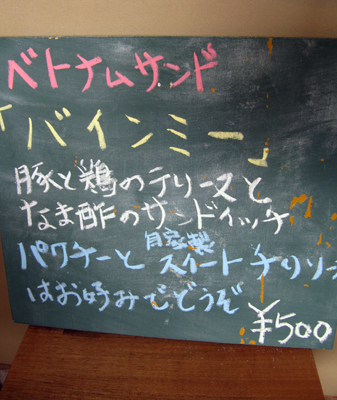 ベトナムサンド
「バインミー」
豚と鶏のテリーヌと
なま酢のサンドイッチ
パクチーと自家製スイートチリソー
はお好みでどうぞ
¥500